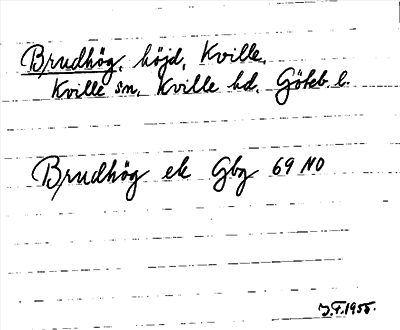 Brudhög, höjd, Kville,
Kville sn, Kville hd, Göteb. l.
Brudhög ek Gbg 69 NO
J.F. 1955.